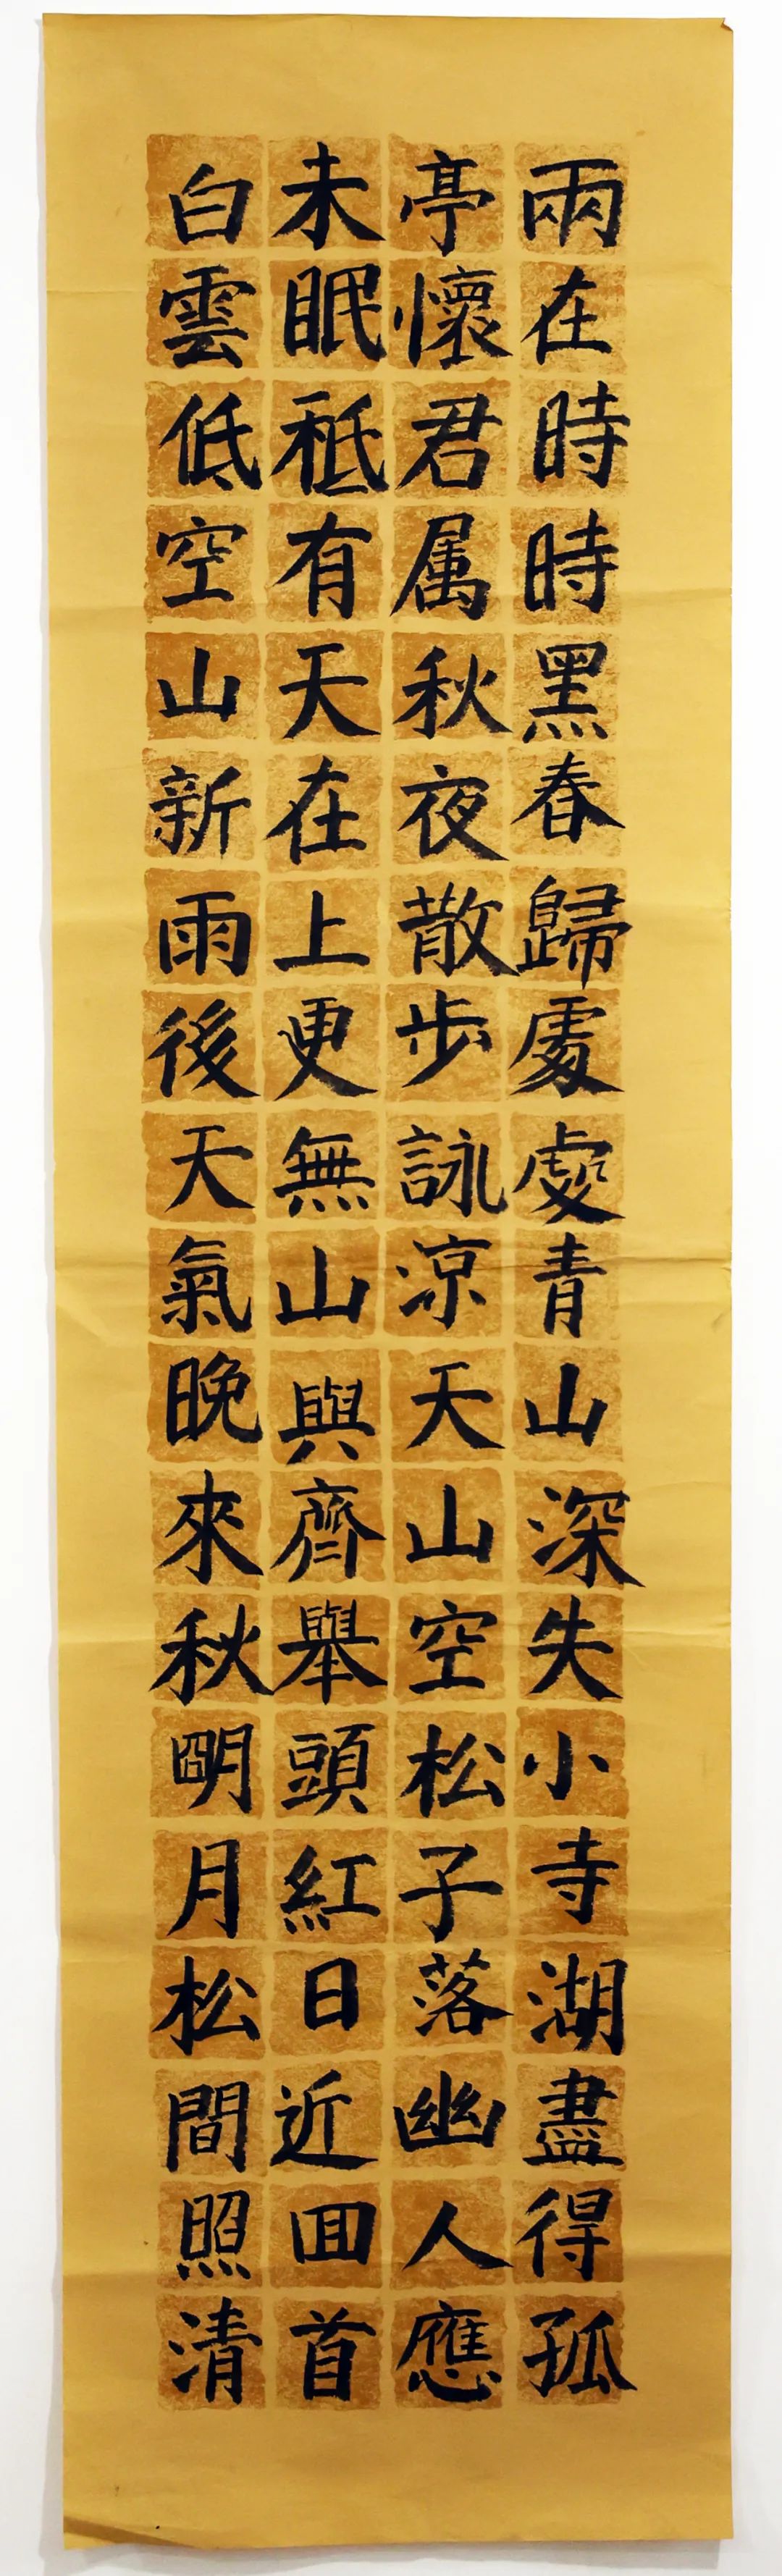 兩在時時黑春歸處處青山深失小寺湖盡得孤
亭懷君属秋夜散步詠涼天山空松子落幽人應
未眠秪有天在上更無山與齊舉頭紅日近囬首
白雲低空山新雨後天氣晚來秋朙月松間照清